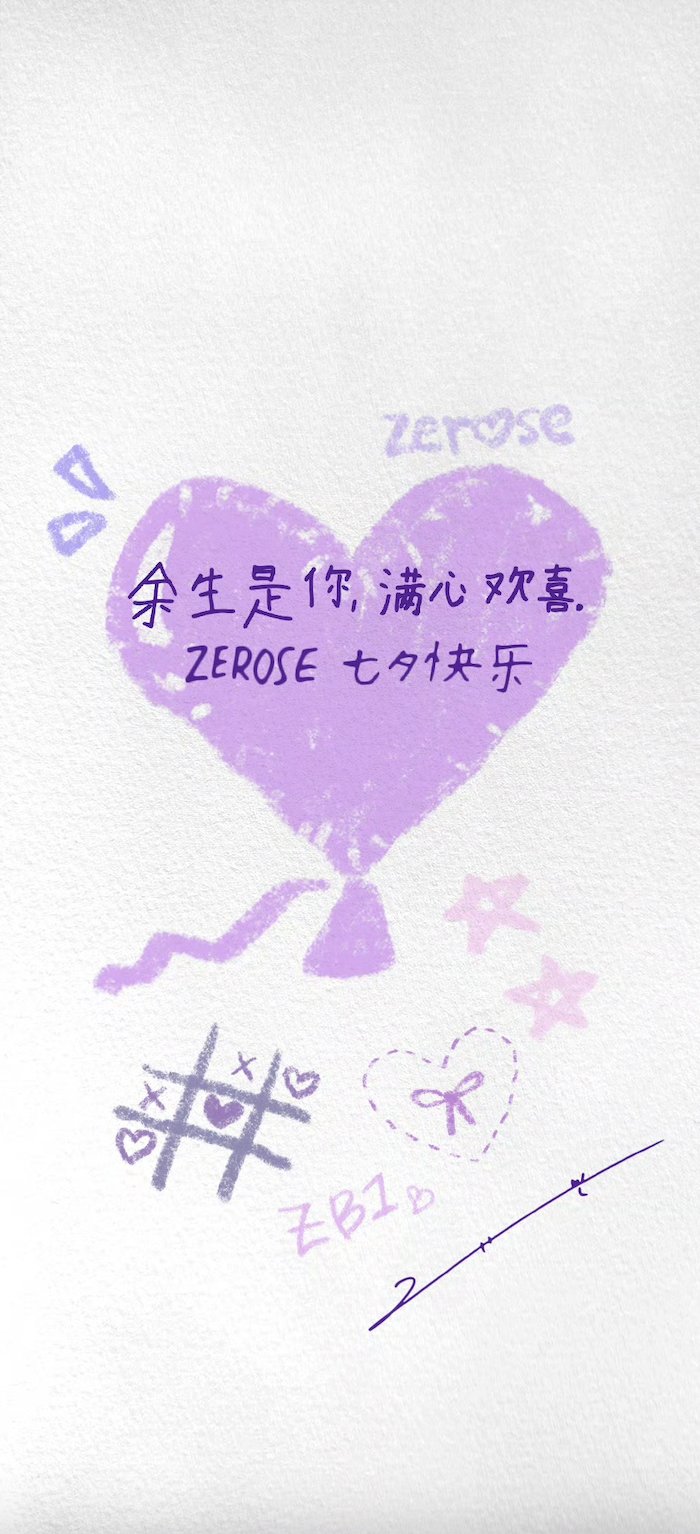 zerose
余生是你, 满心欢喜.
ZEROSE 七夕快乐
ZB1